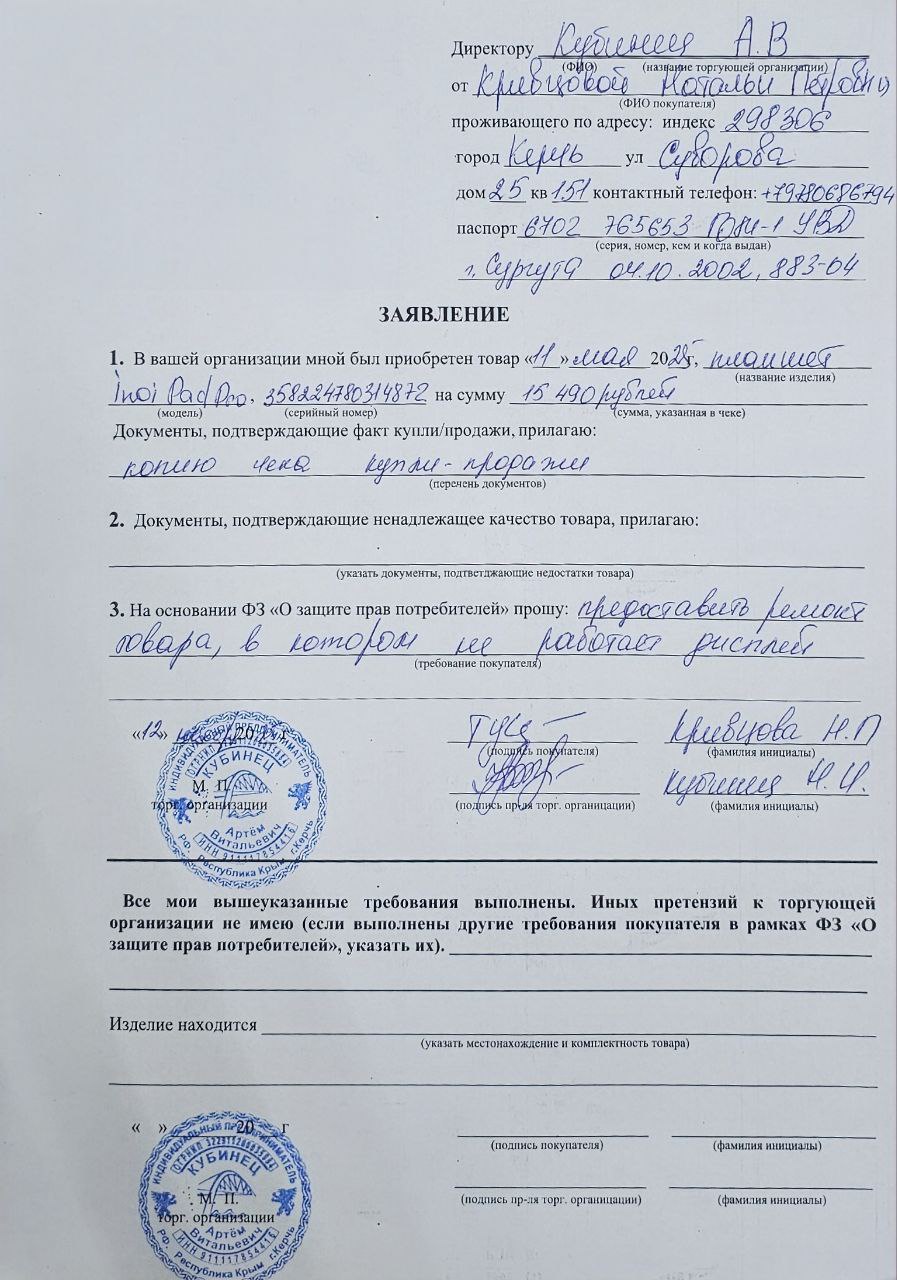 Директору Кубинец А.В
(ФИО) (название торгующей организации)
от Кривцовой Натальи Петровны
(ФИО покупателя)
проживающего по адресу: индекс 298306
город Керчь ул Суворова
дом 25 кв 151 контактный телефон: +79780686794
паспорт 6702 765653 ГОМ-1 УВД
(серия, номер, кем и когда выдан)
г. Сургута 04.10.2002, 883-04
ЗАЯВЛЕНИЕ
1. В вашей организации мной был приобретен товар «11» мая 2025г, планшет
(название изделия)
inoi Pad Pro, 358224780314872 на сумму 15 490 рублей
(модель) (серийный номер) (сумма, указанная в чеке)
Документы, подтверждающие факт купли/продажи, прилагаю:
копию чека купли-продажи
(перечень документов)
2. Документы, подтверждающие ненадлежащее качество товара, прилагаю:
(указать документы, подтветджающие недостатки товара)
3. На основании ФЗ «О защите прав потребителей» прошу: предоставить ремонт
товара, в котором не работает дисплей
(требование покупателя)
«12» 20 г Кривцова Н.П
(подпись покупателя) (фамилия инициалы)
М. П. Кубинец Н.И.
торг. организации (подпись пр-ля торг. органицации) (фамилия инициалы)
ИНДИВИДУАЛЬНЫЙ ПРЕДПРИНИМАТЕЛЬ
КУБИНЕЦ
Артём
Витальевич
ИНН 911117854416
РФ, Республика Крым г.Керчь
Все мои вышеуказанные требования выполнены. Иных претензий к торгующей
организации не имею (если выполнены другие требования покупателя в рамках ФЗ «О
защите прав потребителей», указать их).
Изделие находится
(указать местонахождение и комплектность товара)
« » 20 г
(подпись покупателя) (фамилия инициалы)
М. П.
торг. организации (подпись пр-ля торг. органицации) (фамилия инициалы)
ИНДИВИДУАЛЬНЫЙ ПРЕДПРИНИМАТЕЛЬ
КУБИНЕЦ
Артём
Витальевич
ИНН 911117854416
РФ, Республика Крым г.Керчь